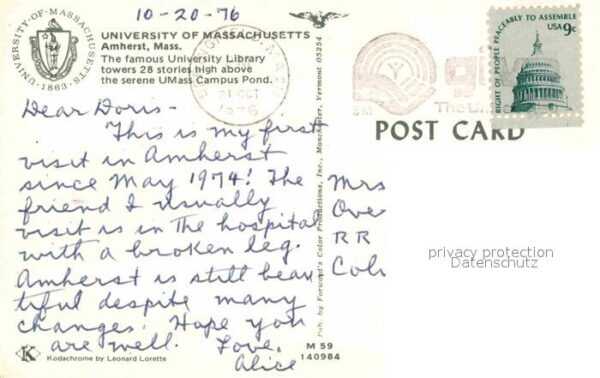 10-20-76
UNIVERSITY OF MASSACHUSETTS
Amherst, Mass.
The famous University Library
towers 28 stories high above
the serene UMass Campus Pond.
UNIVERSITY·OF·MASSACHUSETTS
·1863·
Dear Doris-
This is my first
visit in Amherst
since May 1974! The
friend I usually
visit is in the hospital
with a broken leg.
Amherst is still beau
tiful despite many
changes. Hope you
are well. Love,
Alice
K
Kodachrome by Leonard Lorette
M 59
140984
Pub. by Forward's Color Productions, Inc., Manchester, Vermont 05254
21 OCT
1976
SM
The Un
RIGHT OF PEOPLE PEACEABLY TO ASSEMBLE
USA 9c
POST CARD
Mrs
Ove
RR
Col
privacy protection
Datenschutz